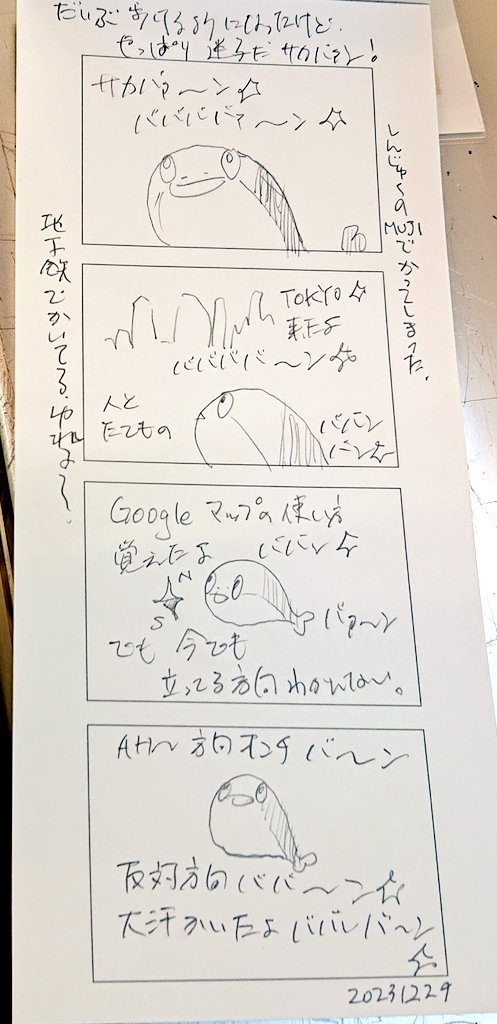 だいぶ あけるようになったけど、
やっぱり 迷子だ サカバァン!
サカバァ〜ン☆
ババババァ〜ン☆
しんじゅくのMUJIでかってしまった。
地下鉄でかいてる、ゆれるよ〜。
TOKYO☆
来たよ
ババババ〜ン☆
人と
たてもの
ババン
バン☆
Googleマップの使い方
覚えたよ ババン☆
N
S
バァ〜ン
でも 今でも
立ってる方向わかんない。
AH〜 方向オンチ バ〜ン
反対方向 ババ〜ン☆
大汗かいたよ ババババ〜ン
☆
20231229